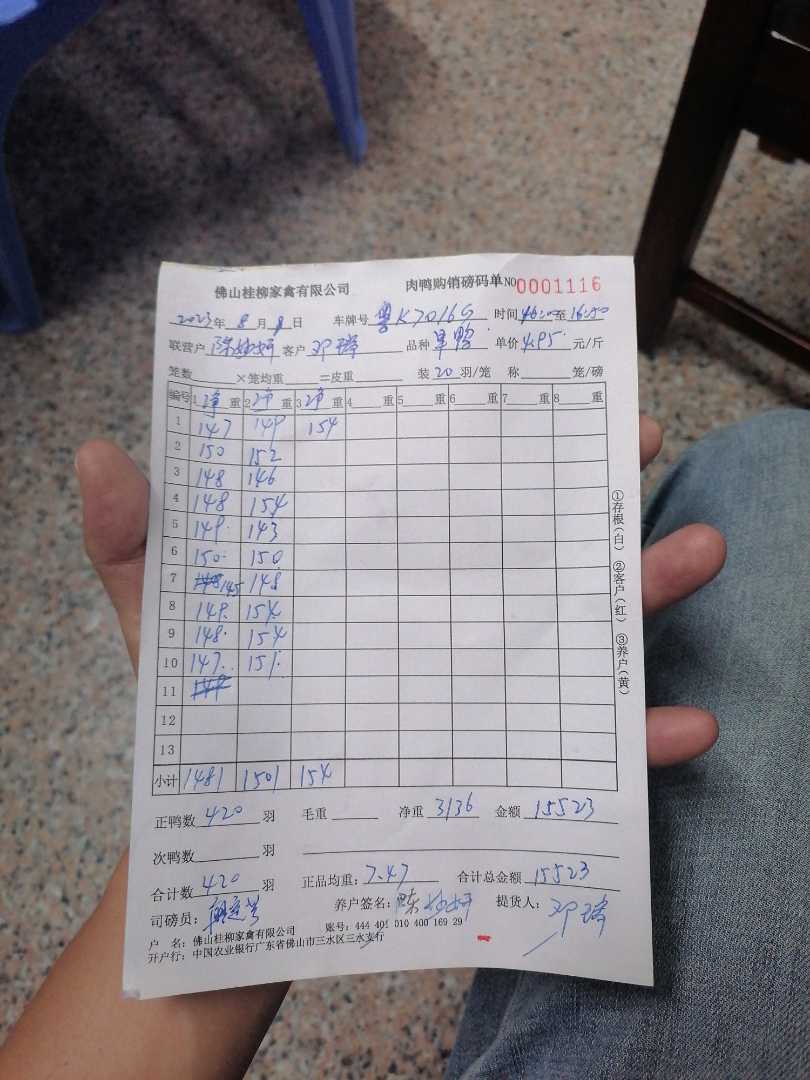 佛山桂柳家禽有限公司 肉鸭购销磅码单 NO 0001116
2023年 8月 9日 车牌号 粤K70165 时间 16:20至 16:50
联营户 陈妙妍 客户 邓 品种 草鸭 单价 4.95 元/斤
笼数 ×笼均重 =皮重 装 20 羽/笼 称 笼/磅
编号 1 净 重 2 净 重 3 净 重 4 重 5 重 6 重 7 重 8 重
1 147 149 154
2 150 152
3 148 146
4 148 154
5 149. 143
6 150. 150
7 145 148
8 149. 154
9 148. 154
10 147.. 151.
11
12
13
小计 1481 1501 154
正鸭数 420 羽 毛重 净重 3136 金额 15523
次鸭数 羽
合计数 420 羽 正品均重: 7.47 合计总金额 15523
司磅员: 养户签名: 陈妙妍 提货人: 邓
户 名: 佛山桂柳家禽有限公司 账号: 444 401 010 400 169 29
开户行: 中国农业银行广东省佛山市三水区三水支行
①存根(白) ②客户(红) ③养户(黄)